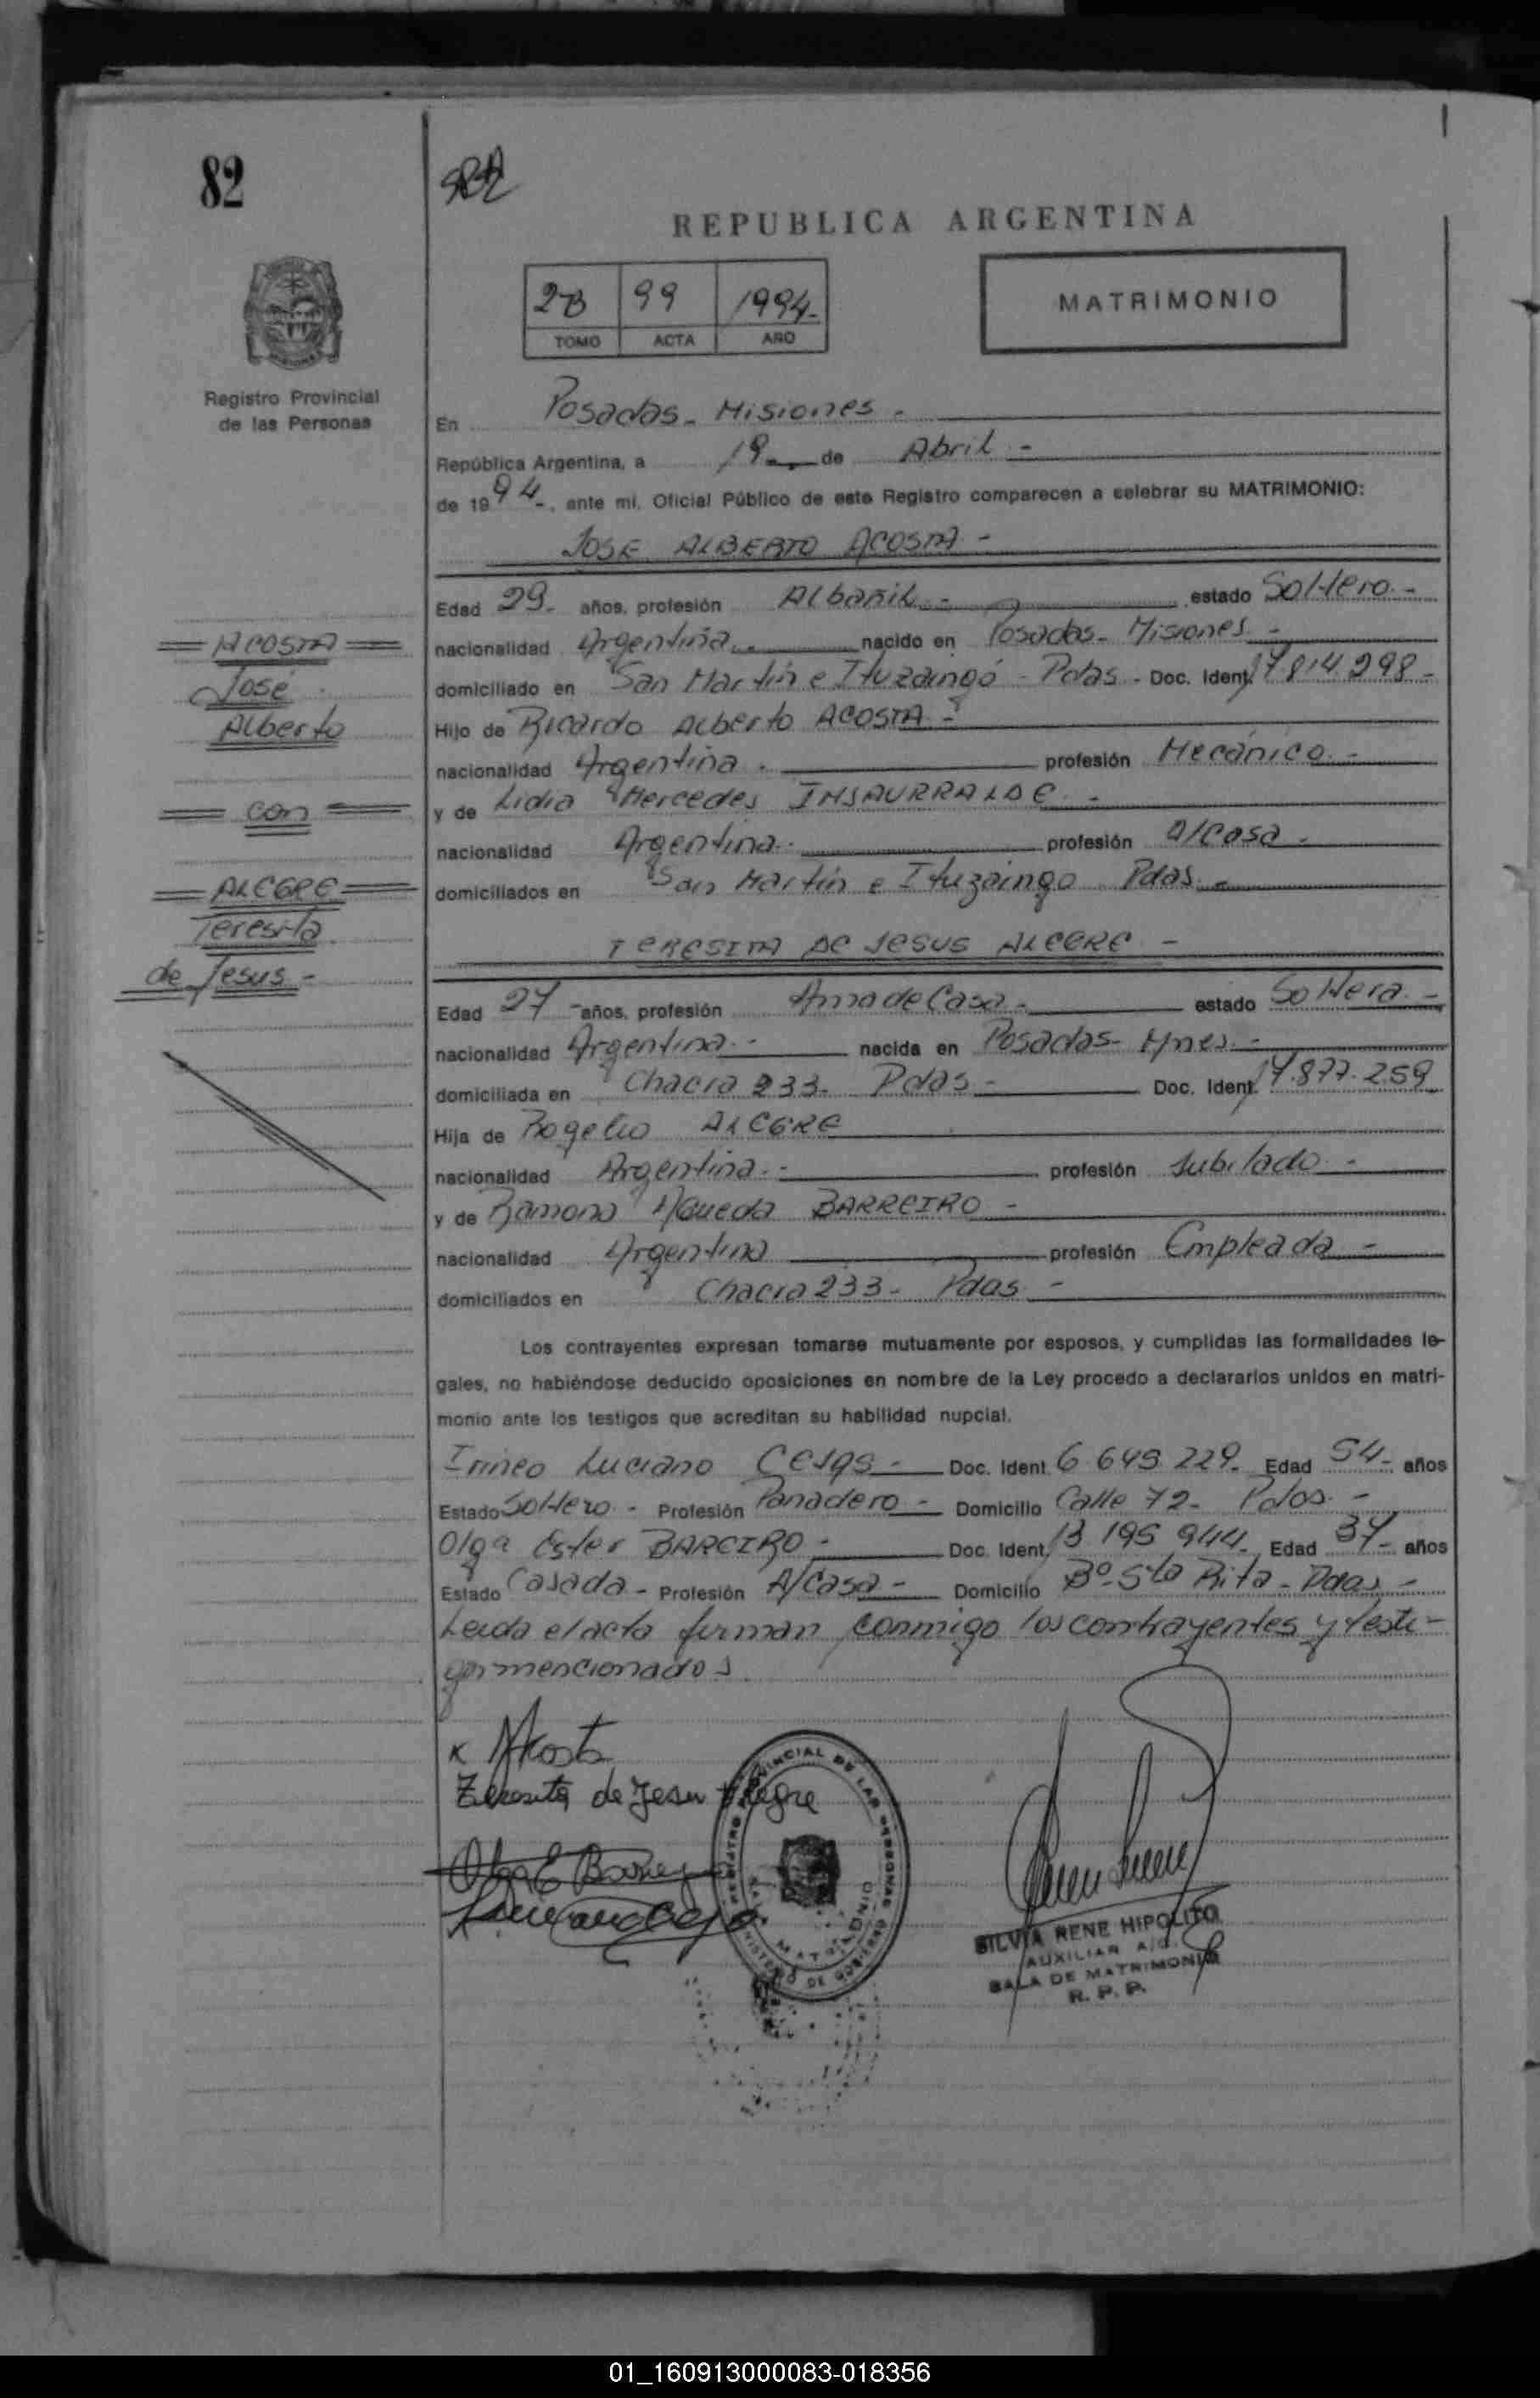 82
REPUBLICA ARGENTINA
2B 99 1994-
TOMO ACTA AÑO
MATRIMONIO
Registro Provincial
de las Personas
En Posadas - Misiones -
República Argentina, a 19 - de Abril -
de 1994-, ante mí, Oficial Público de este Registro comparecen a celebrar su MATRIMONIO:
JOSE ALBERTO ACOSTA -
Edad 29- años, profesión Albañil - estado Soltero -
nacionalidad Argentina - nacido en Posadas - Misiones -
domiciliado en San Martín e Ituzaingó - Pdas - Doc. Ident. 17.814.298-
Hijo de Ricardo Alberto ACOSTA -
nacionalidad Argentina - profesión Mecánico -
y de Lidia Mercedes INSAURRALDE -
nacionalidad Argentina - profesión A/Casa -
domiciliados en San Martín e Ituzaingo Pdas -
TERESITA DE JESUS ALEGRE -
Edad 27 - años, profesión Ama de Casa - estado Soltera -
nacionalidad Argentina - nacida en Posadas - Mnes -
domiciliada en Chacra 233- Pdas - Doc. Ident. 17.877.259
Hija de Rogelio ALEGRE
nacionalidad Argentina - profesión Jubilado -
y de Ramona Agueda BARREIRO -
nacionalidad Argentina profesión Empleada -
domiciliados en Chacra 233- Pdas -
ACOSTA
José
Alberto
con
ALEGRE
Teresita
de Jesus -
Los contrayentes expresan tomarse mutuamente por esposos, y cumplidas las formalidades le-
gales, no habiéndose deducido oposiciones en nombre de la Ley procedo a declararlos unidos en matri-
monio ante los testigos que acreditan su habilidad nupcial.
Irineo Luciano CEJAS - Doc. Ident. 6.649.229- Edad 54- años
Estado Soltero - Profesión Panadero - Domicilio Calle 72- Pdas -
Olga Ester BAREIRO - Doc. Ident. 13.195.944- Edad 37- años
Estado Casada - Profesión A/Casa - Domicilio Bº Sta Rita - Pdas -
Leida el acta firman conmigo los contrayentes y testi-
gos mencionados
x Acosta
Teresita de Jesu Alegre
REGISTRO PROVINCIAL DE LAS PERSONAS
MINISTERIO DE GOBIERNO
MATRIMONIO
SILVIA RENE HIPOLITO
AUXILIAR
SALA DE MATRIMONIO
R. P. P.
01_160913000083-018356